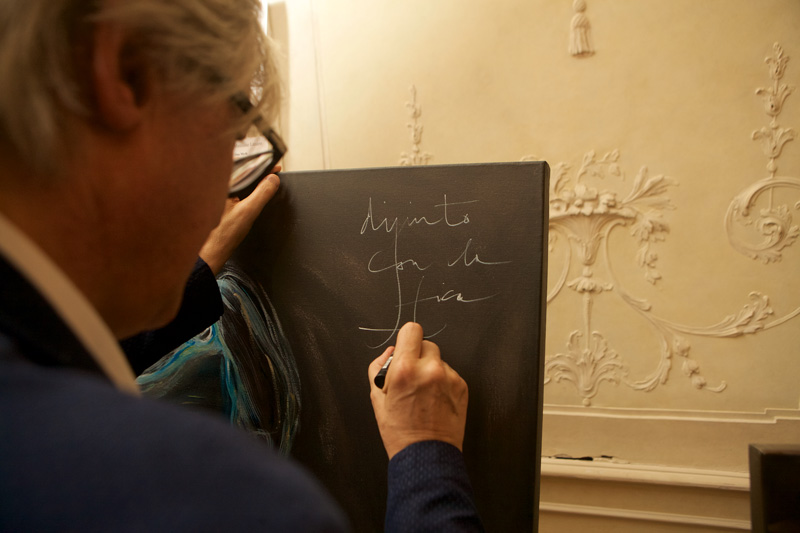 dipinto
con la
fica